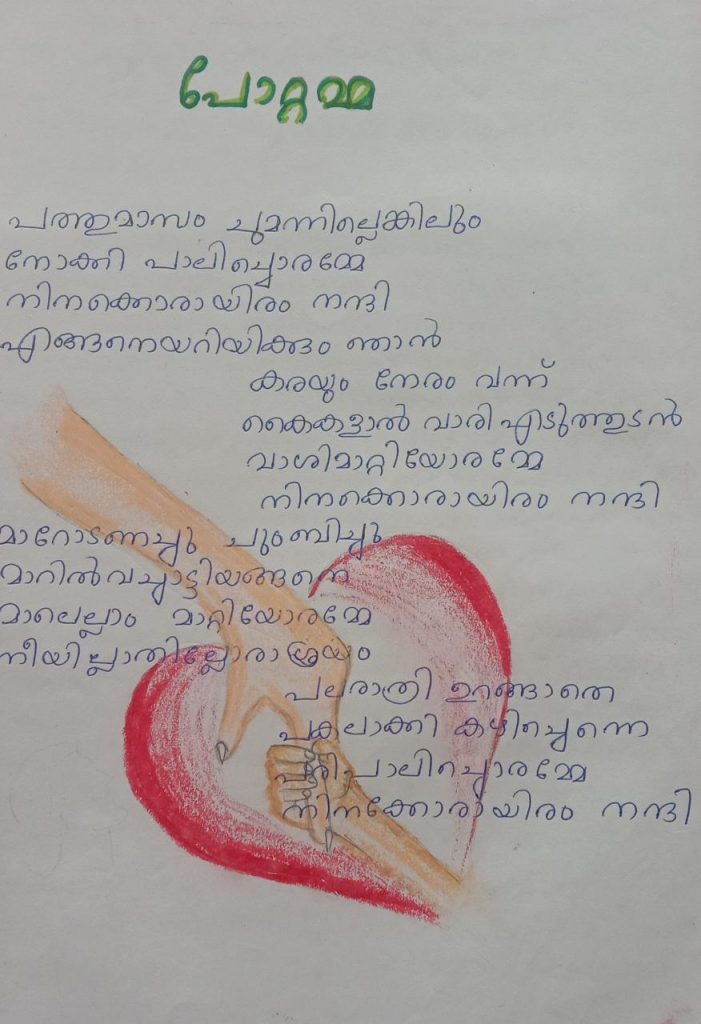 പോറ്റമ്മ
പത്തുമാസം ചുമന്നില്ലെങ്കിലും
നോക്കി പാലിച്ചൊരമ്മേ
നിനക്കൊരായിരം നന്ദി
എങ്ങനെയറിയിക്കും ഞാൻ
കരയും നേരം വന്ന്
കൈകളാൽ വാരിഎടുത്തുടൻ
വാശിമാറ്റിയോരമ്മേ
നിനക്കൊരായിരം നന്ദി
മാറോടണച്ചു ചുംബിച്ചു
മാറിൽവച്ചാട്ടിയങ്ങനെ
മാലെല്ലാം മാറ്റിയോരമ്മേ
നീയില്ലാതില്ലോരാശ്രയം
പലരാത്രി ഉറങ്ങാതെ
പകലാക്കി കഴിച്ചെന്നെ
പാലിച്ചൊരമ്മേ
നിനക്കോരായിരം നന്ദി